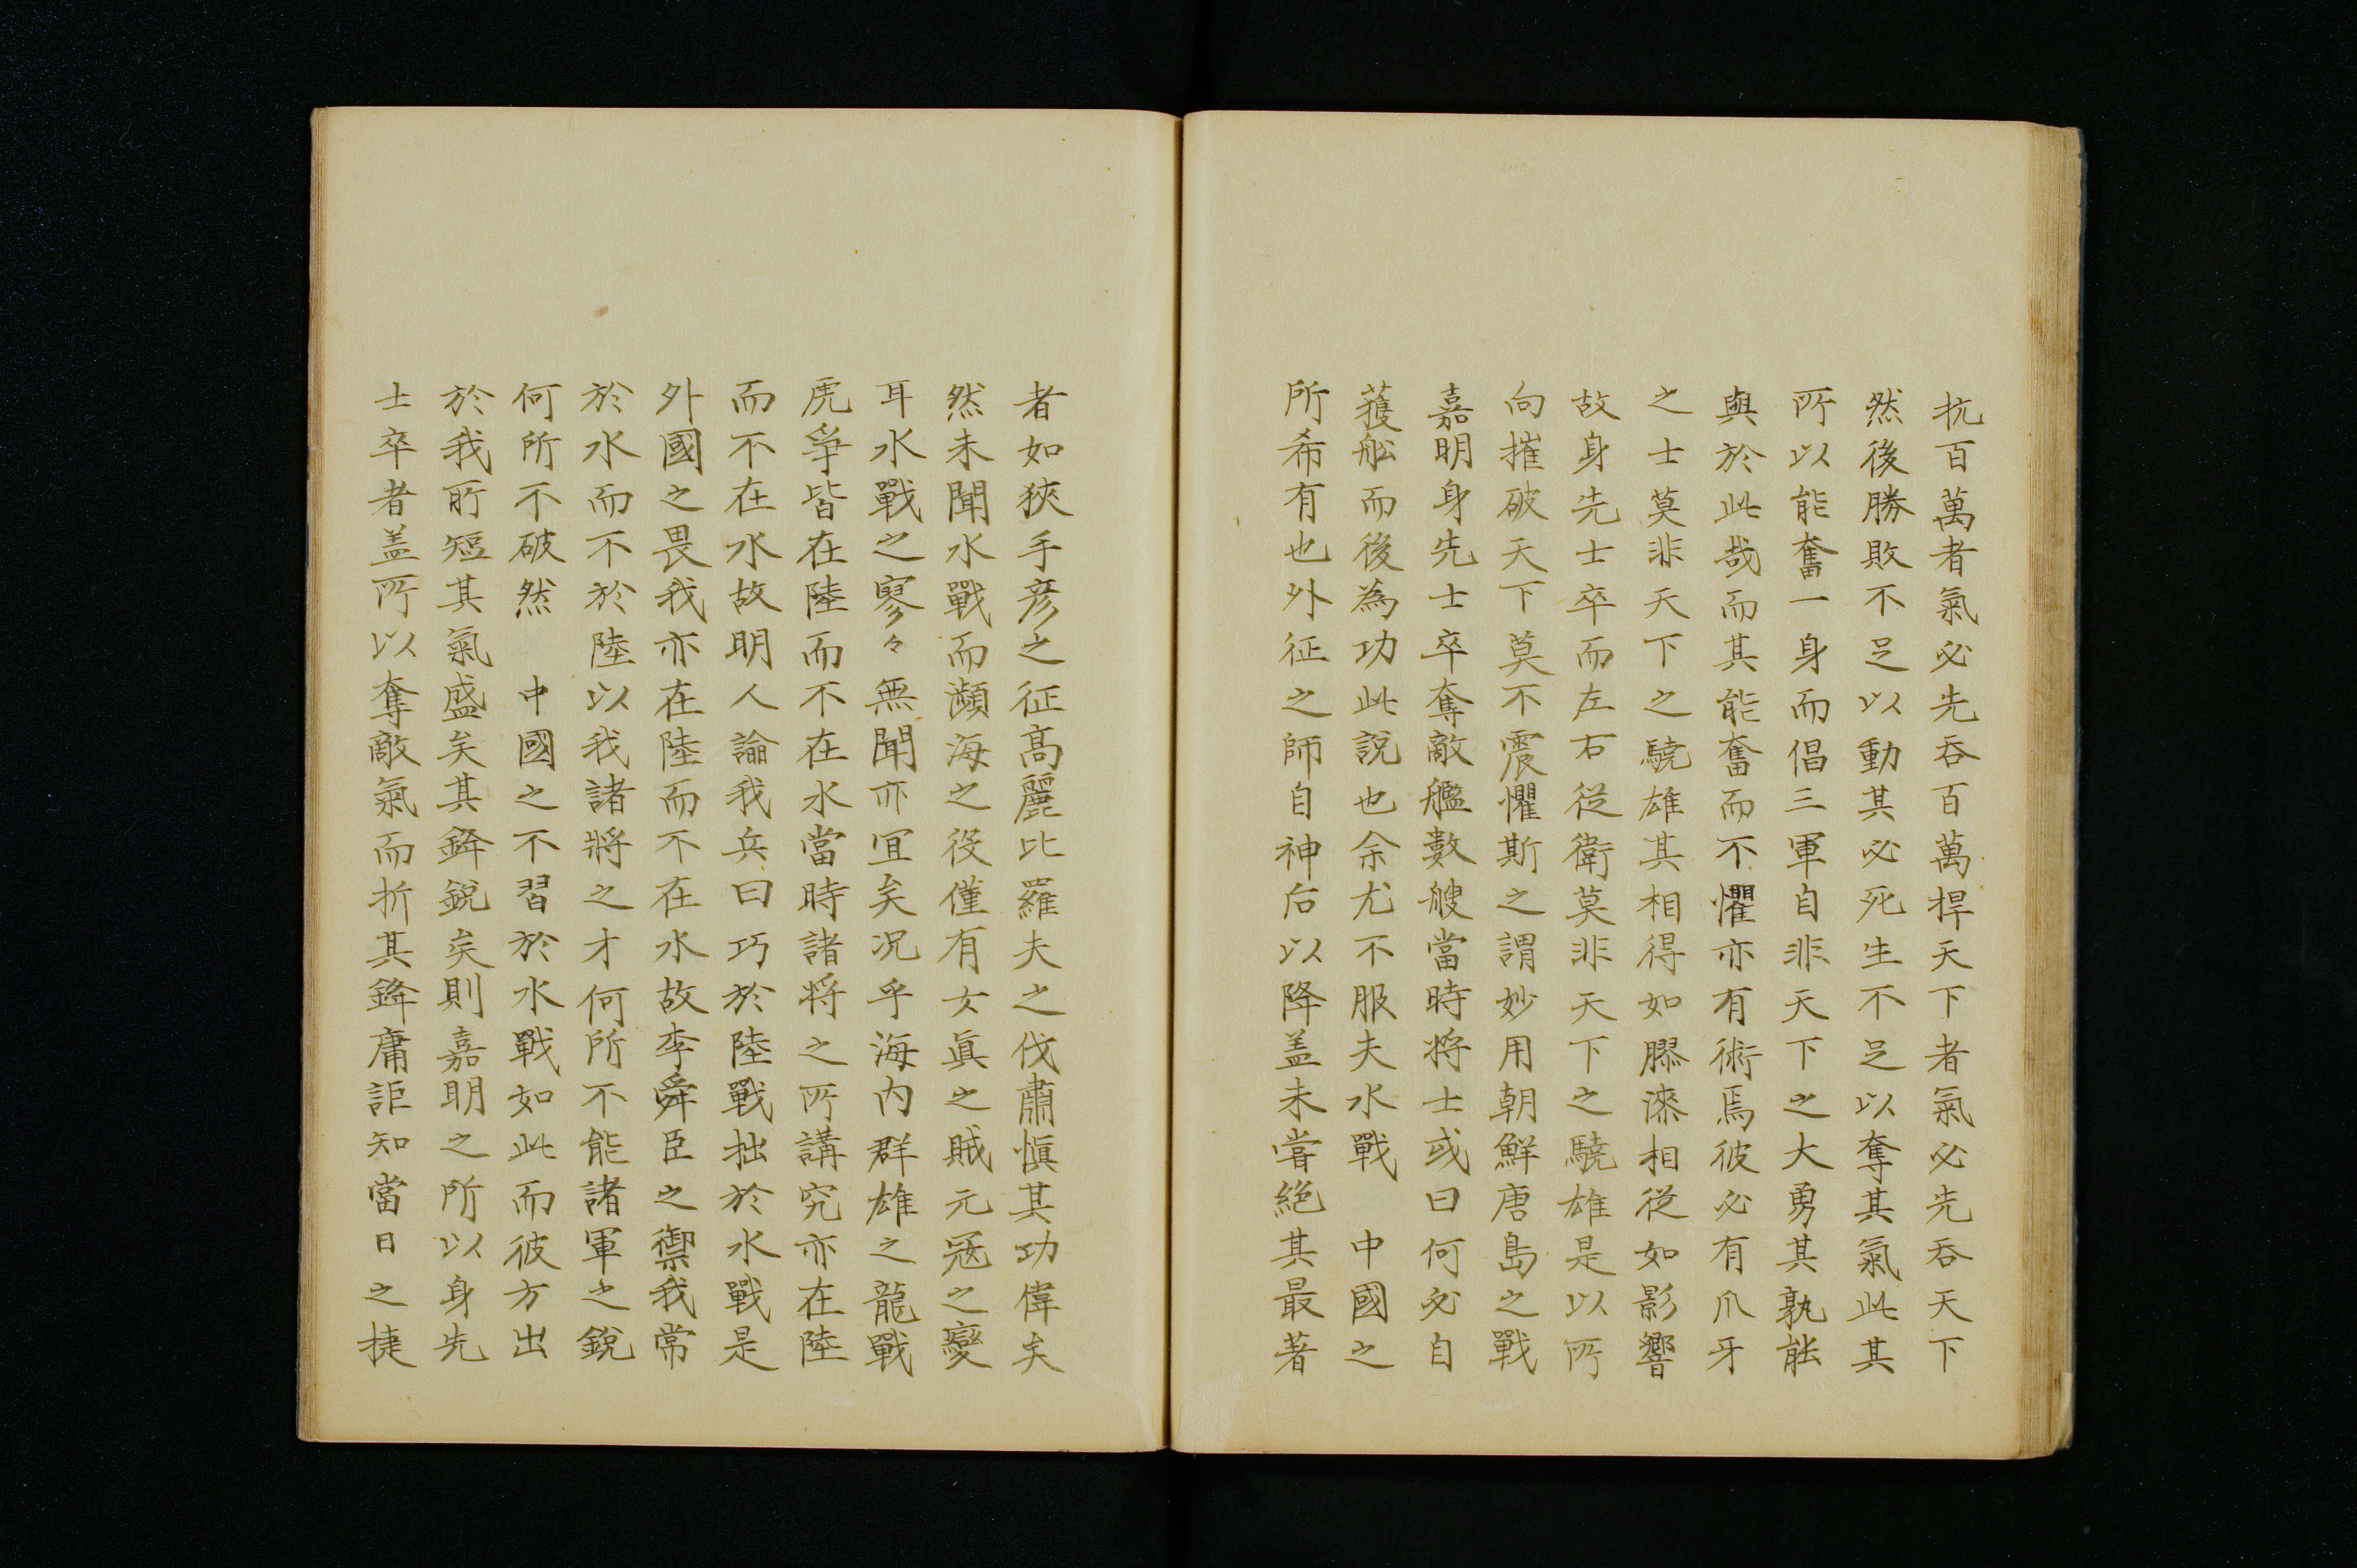 抗百萬者氣必先呑百萬捍天下者氣必先呑天下
然後勝敗不足以動其必死生不足以奪其氣此其
所以能奮一身而倡三軍自非天下之大勇其孰能
與於此哉而其能奮而不懼亦有術焉彼必有爪牙
之士莫非天下之驍雄其相得如膠漆相從如影響
故身先士卒而左右從衛莫非天下之驍雄是以所
向摧破天下莫不震懼斯之謂妙用朝鮮唐島之戰
嘉明身先士卒奪敵艦數艘當時将士或曰何必自
獲舩而後為功此說也余尤不服夫水戰　中國之
所希有也外征之師自神后以降盖未嘗絶其最著
者如狹手彦之征高麗比羅夫之伐肅愼其功偉矣
然未聞水戰而瀕海之役僅有女眞之賊元寇之變
耳水戰之寥々無聞亦宜矣况乎海内群雄之龍戰
虎爭皆在陸而不在水當時諸将之所講究亦在陸
而不在水故明人論我兵曰巧於陸戰拙於水戰是
外國之畏我亦在陸而不在水故李舜臣之禦我常
於水而不於陸以我諸將之才何所不能諸軍之銳
何所不破然　中國之不習於水戰如此而彼方出
於我所短其氣盛矣其鋒銳矣則嘉明之所以身先
士卒者盖所以奪敵氣而折其鋒庸詎知當日之捷